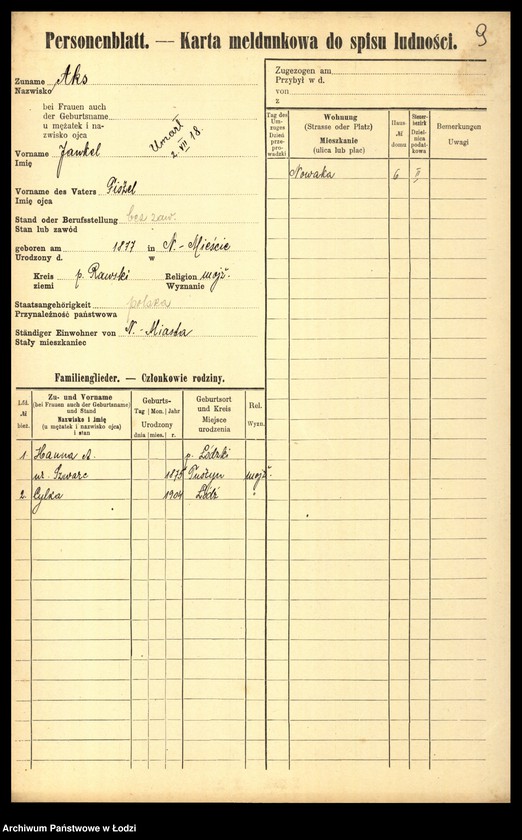 9
Personenblatt. — Karta meldunkowa do spisu ludności.
Zuname Aks
Nazwisko
bei Frauen auch
der Geburtsname
u mężatek i na-
zwisko ojca
Umarł
2. VII 18.
Vorname Jankel
Imię
Vorname des Vaters
Imię ojca
Stand oder Berufsstellung bez zaw.
Stan lub zawód
geboren am 1877 in N.-Mieście
Urodzony d. w
Kreis p. Rawski Religion mojż.
ziemi Wyznanie
Staatsangehörigkeit polska
Przynależność państwowa
Ständiger Einwohner von N.-Miasta
Stały mieszkaniec
Zugezogen am
Przybył w d.
von
z
Tag des Um-zuges Dzień prze-prowadzki
Wohnung (Strasse oder Platz) Mieszkanie (ulica lub plac)
Haus № domu
Steuer-bezirk Dziel-nica podat-kowa
Bemerkungen Uwagi
Nowaka 6 II
Familienglieder. — Członkowie rodziny.
Lfd. № bież.
Zu- und Vorname (bei Frauen auch der Geburtsname) und Stand Nazwisko i imię (u mężatek i nazwisko ojca) i stan
Geburts- Tag Mon. Jahr Urodzony dnia mies. r.
Geburtsort und Kreis Miejsce urodzenia
Rel. Wyzn.
1. Hanna A. p. Łódzki
ur. Szwarc 1875 mojż.
2. Cylka 1904 Łódź "
Archiwum Państwowe w Łodzi